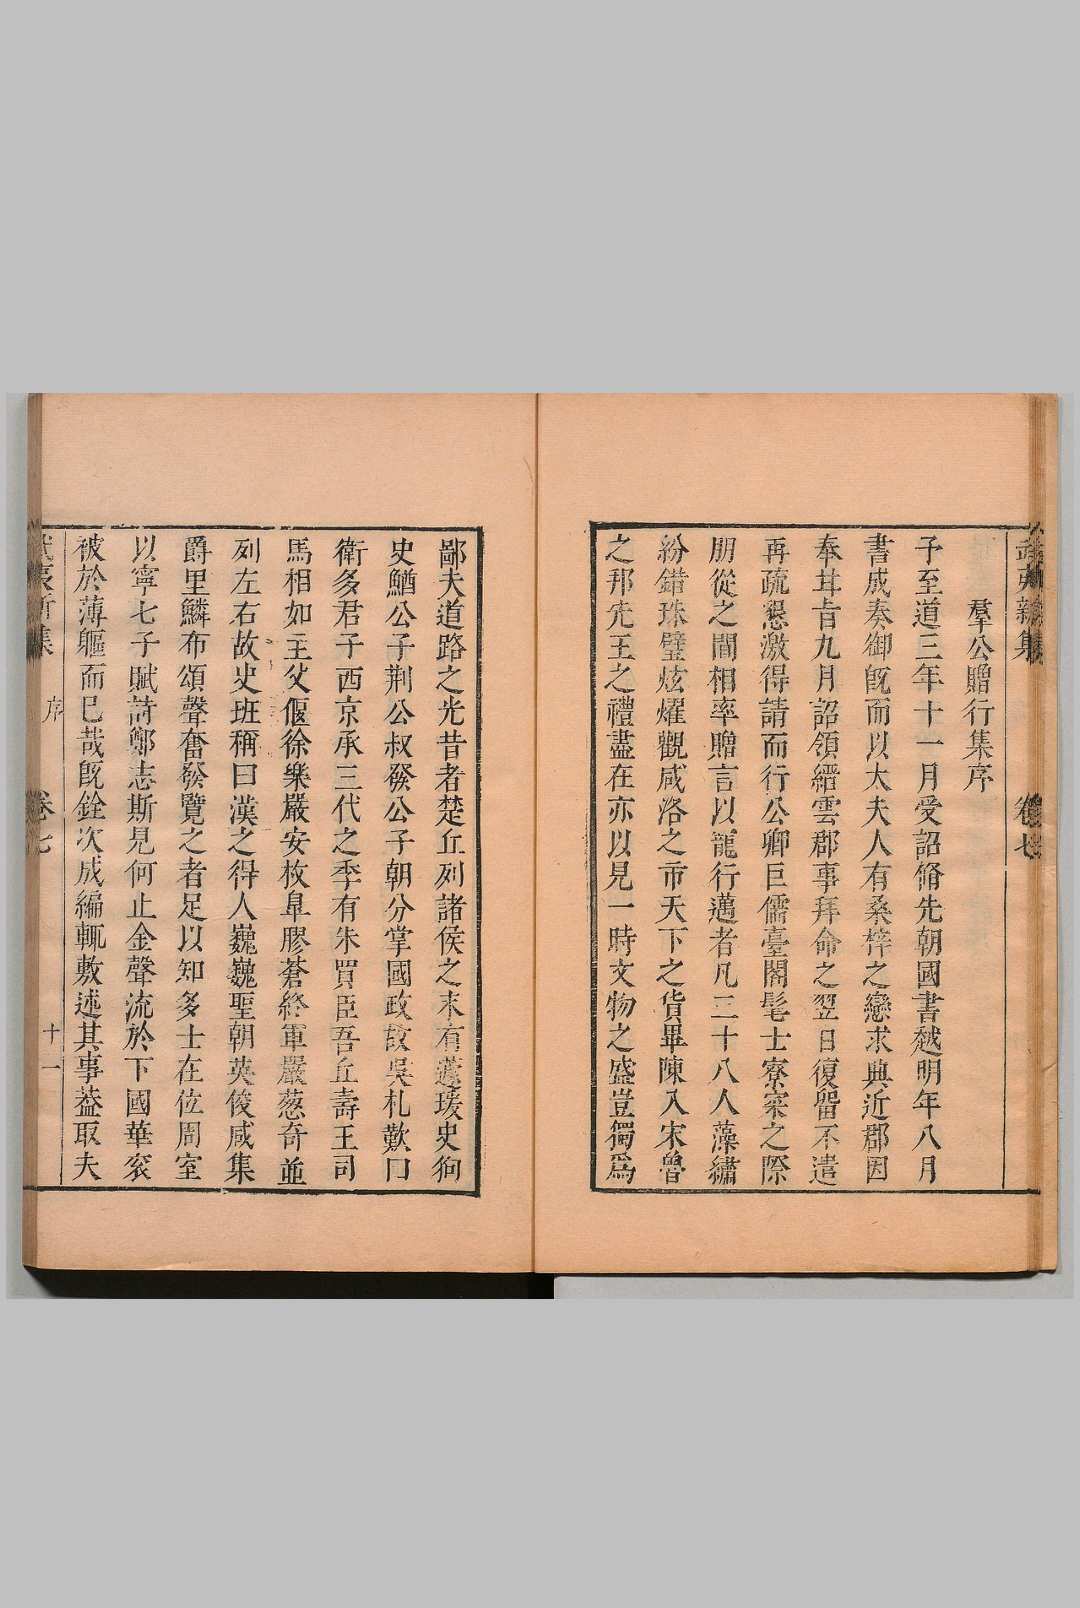 武夷新集 卷七
羣公贈行集序
予至道三年十一月受詔脩先朝國書越明年八月
書成奏御旣而以太夫人有桑梓之戀求典近郡因
奉䒑旨九月詔領縉雲郡事拜命之翌日復留不遣
再疏懇激得請而行公卿巨儒臺閣髦士寮寀之際
朋從之間相率贈言以寵行邁者凡三十八人藻繡
紛錯珠璧炫燿觀咸洛之市天下之貨畢陳入宋魯
之邦先王之禮盡在亦以見一時文物之盛豈獨爲
鄙夫道路之光昔者楚丘列諸侯之末有蘧瑗史狗
史鰌公子荆公叔發公子朝分掌國政故吳札歎曰
衛多君子西京承三代之季有朱買臣吾丘壽王司
馬相如主父偃徐樂嚴安枚皐膠蒼終軍嚴葱奇並
列左右故史班稱曰漢之得人巍巍聖朝英俊咸集
爵里鱗布頌聲奮發覽之者足以知多士在位周室
以寧七子賦詩鄭志斯見何止金聲流於下國華衮
被於薄軀而已哉旣銓次成編輒敷述其事葢取夫
武夷新集 序 卷七 十一